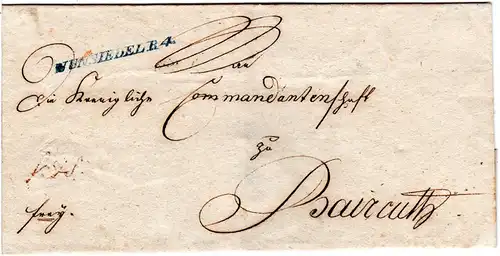 WUNSIEDEL R 4.
An
die Königliche Commandantenschaft
zu
frey. Baireuth